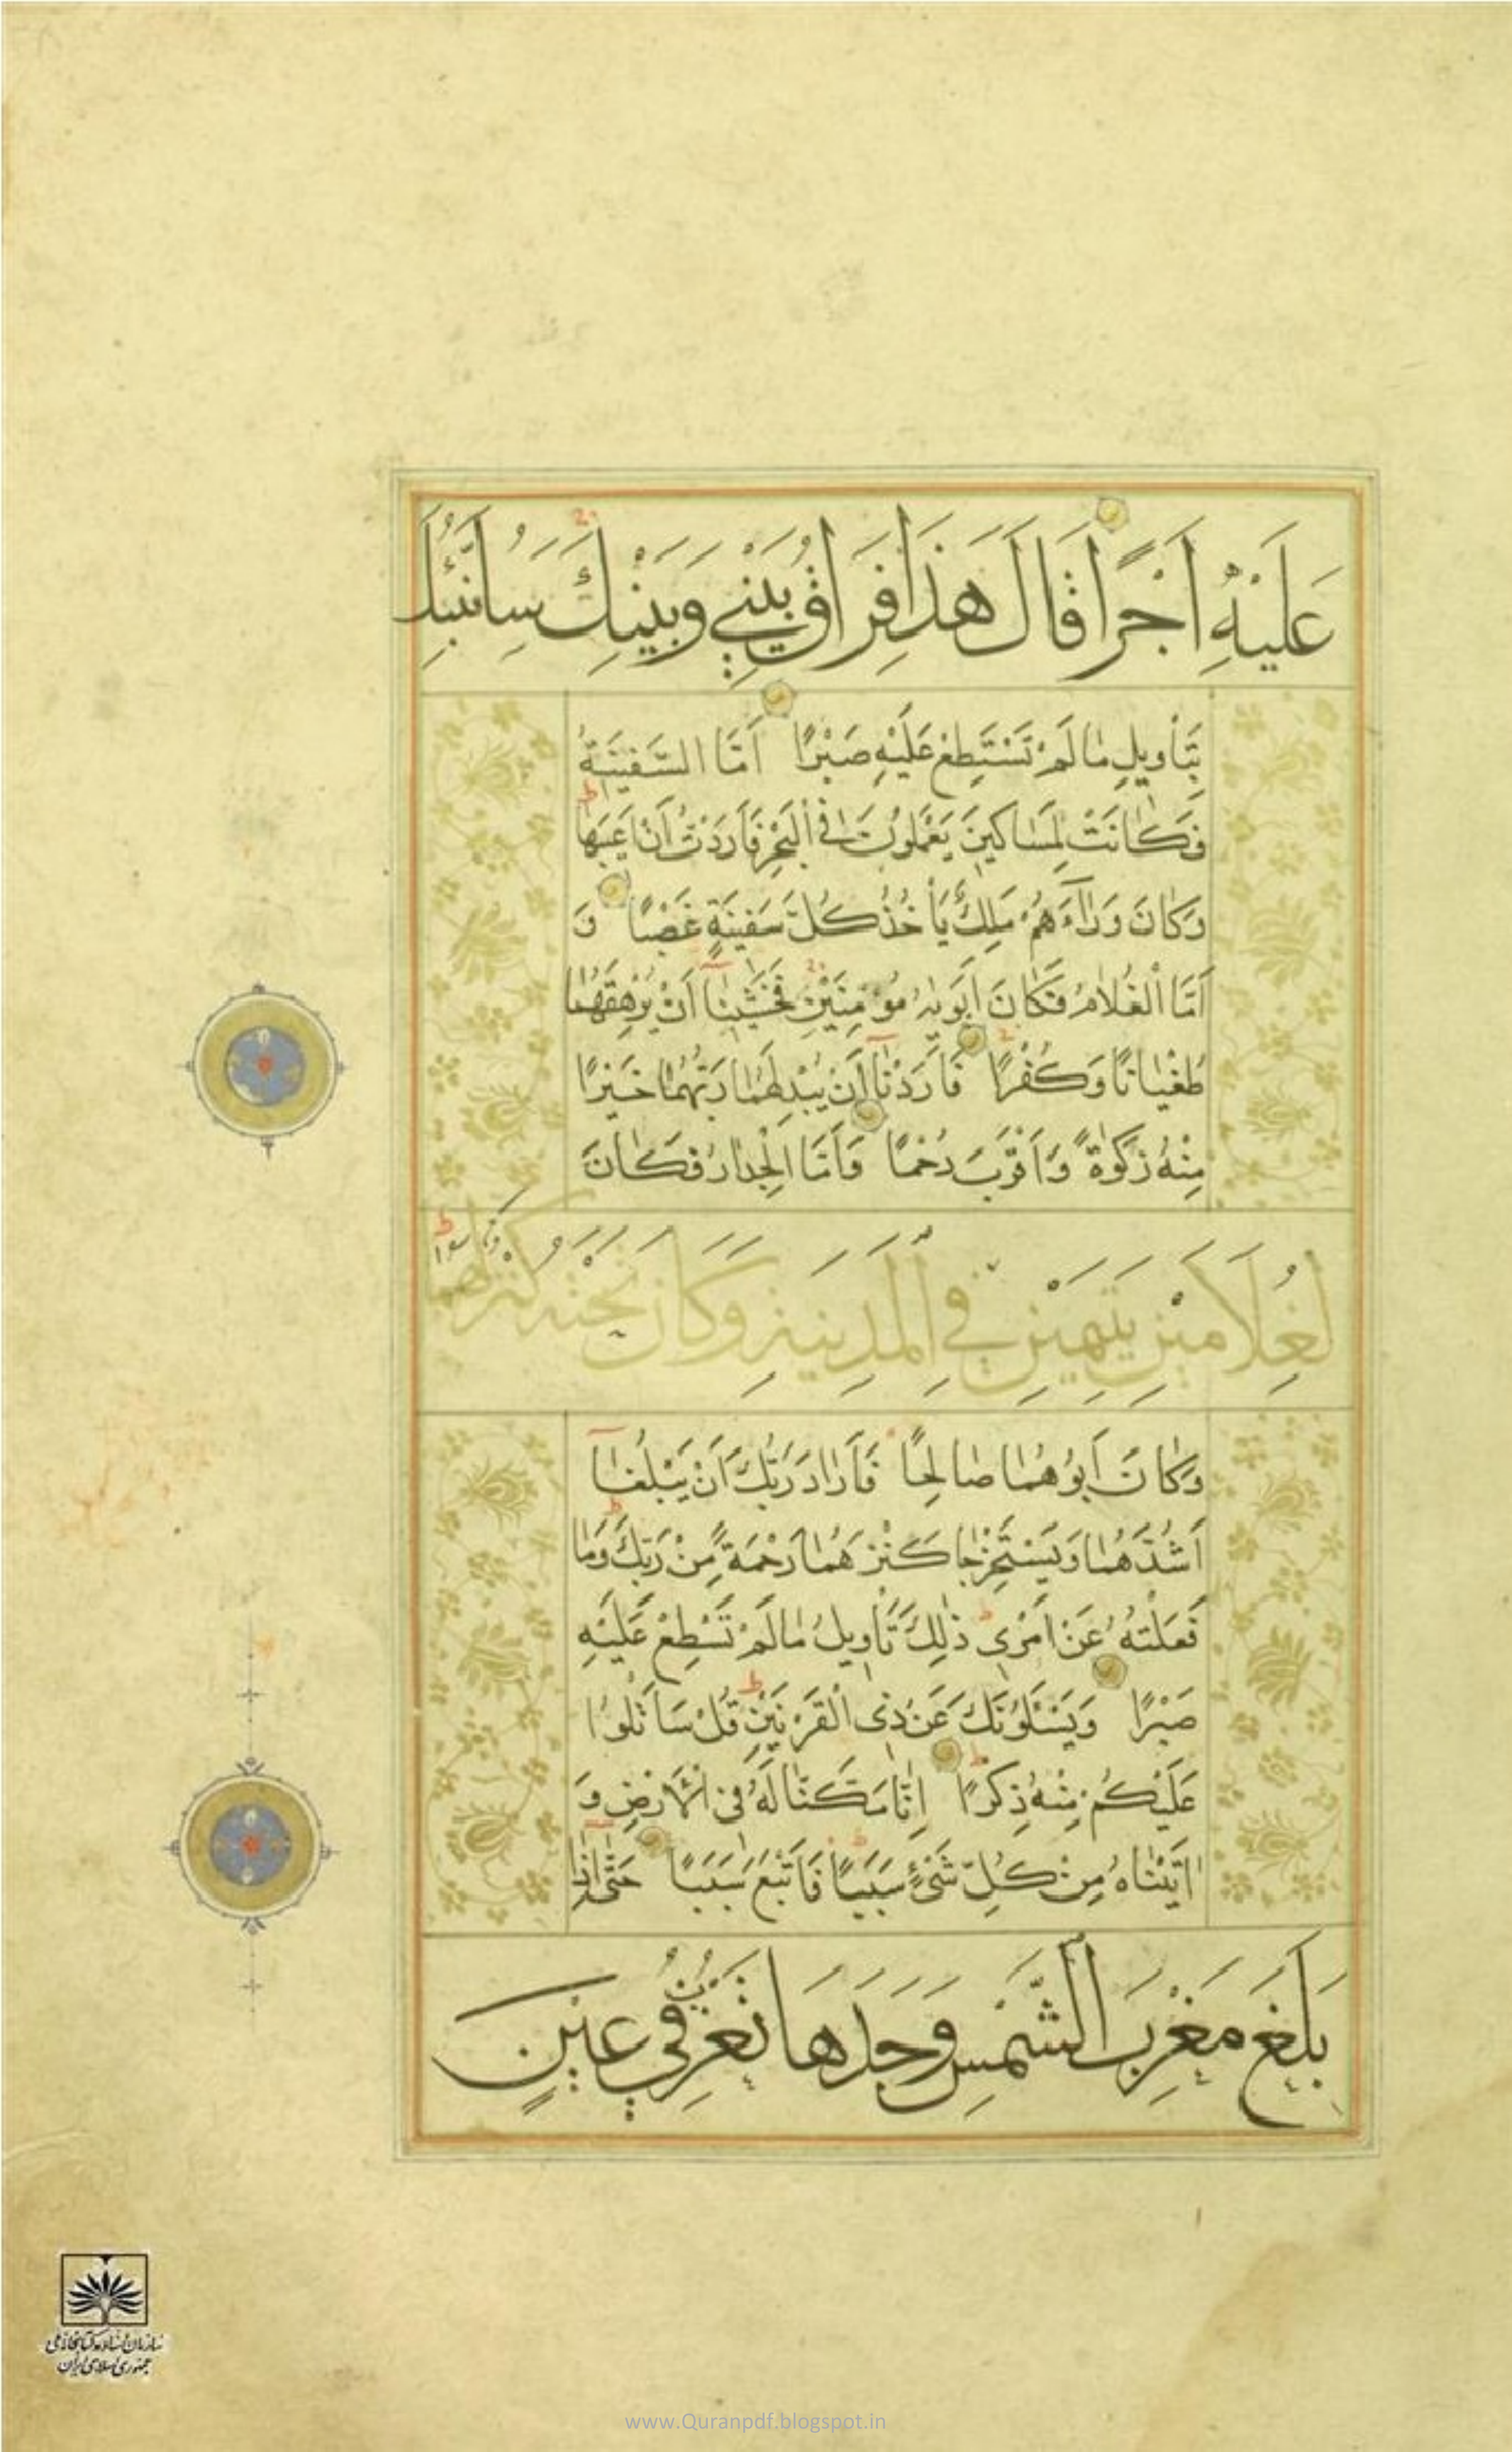 عَلَيْهِ اَجْرًا قَالَ هَذَا فِرَاقُ بَيْنِي وَبَيْنِكَ سَاُنَبِّئُكَ
بِتَأْوِيلِ مَا لَمْ تَسْتَطِعْ عَلَيْهِ صَبْرًا اَمَّا السَّفِينَةُ
فَكَانَتْ لِمَسَاكِينَ يَعْمَلُونَ فِي الْبَحْرِ فَأَرَدْتُ اَنْ اَعِيبَهَا
وَكَانَ وَرَآءَهُمْ مَلِكٌ يَأْخُذُ كُلَّ سَفِينَةٍ غَصْبًا وَ
اَمَّا الْغُلَامُ فَكَانَ اَبَوَاهُ مُؤْمِنَيْنِ فَخَشِينَآ اَنْ يُرْهِقَهُمَا
طُغْيَانًا وَكُفْرًا فَاَرَدْنَآ اَنْ يُبْدِلَهُمَا رَبُّهُمَا خَيْرًا
مِنْهُ زَكٰوةً وَاَقْرَبَ رُحْمًا وَاَمَّا الْجِدَارُ فَكَانَ
لِغُلَامَيْنِ يَتِيمَيْنِ فِي الْمَدِينَةِ وَكَانَ تَحْتَهُ كَنْزٌ لَهُمَا
وَكَانَ اَبُوهُمَا صَالِحًا فَاَرَادَ رَبُّكَ اَنْ يَبْلُغَآ
اَشُدَّهُمَا وَيَسْتَخْرِجَا كَنْزَهُمَا رَحْمَةً مِنْ رَبِّكَ وَمَا
فَعَلْتُهُ عَنْ اَمْرِي ذٰلِكَ تَأْوِيلُ مَا لَمْ تَسْطِعْ عَلَيْهِ
صَبْرًا وَيَسْئَلُونَكَ عَنْ ذِي الْقَرْنَيْنِ قُلْ سَاَتْلُوا
عَلَيْكُمْ مِنْهُ ذِكْرًا اِنَّا مَكَّنَّا لَهُ فِي الْاَرْضِ وَ
اٰتَيْنَاهُ مِنْ كُلِّ شَيْءٍ سَبَبًا فَاَتْبَعَ سَبَبًا حَتّٰى اِذَا
بَلَغَ مَغْرِبَ الشَّمْسِ وَجَدَهَا تَغْرُبُ فِي عَيْنٍ
سازمان اسناد و کتابخانه ملی
جمهوری اسلامی ایران
www.Quranpdf.blogspot.in